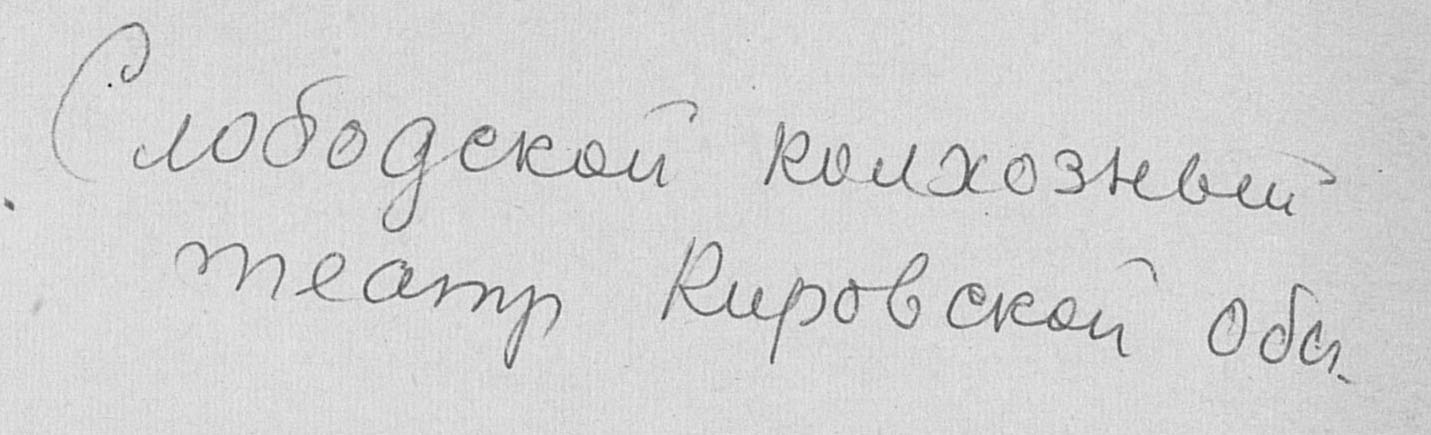 Слободской колхозный
театр Кировской обл.